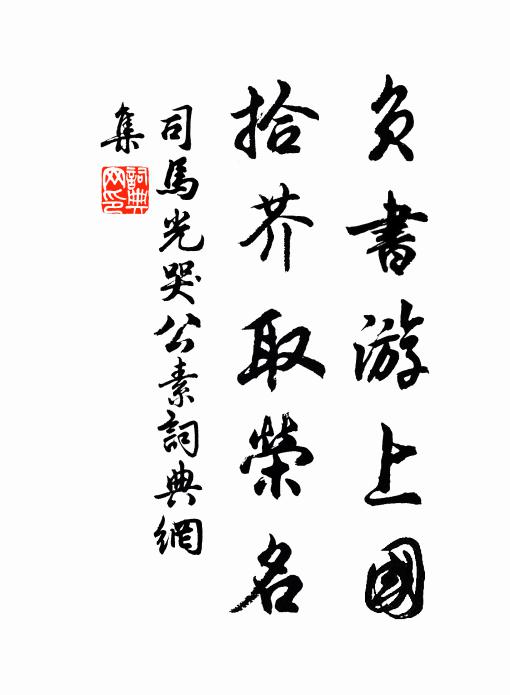 負書游上國
拾芥取榮名
司馬光哭公素詞典網
集
詞典
网印